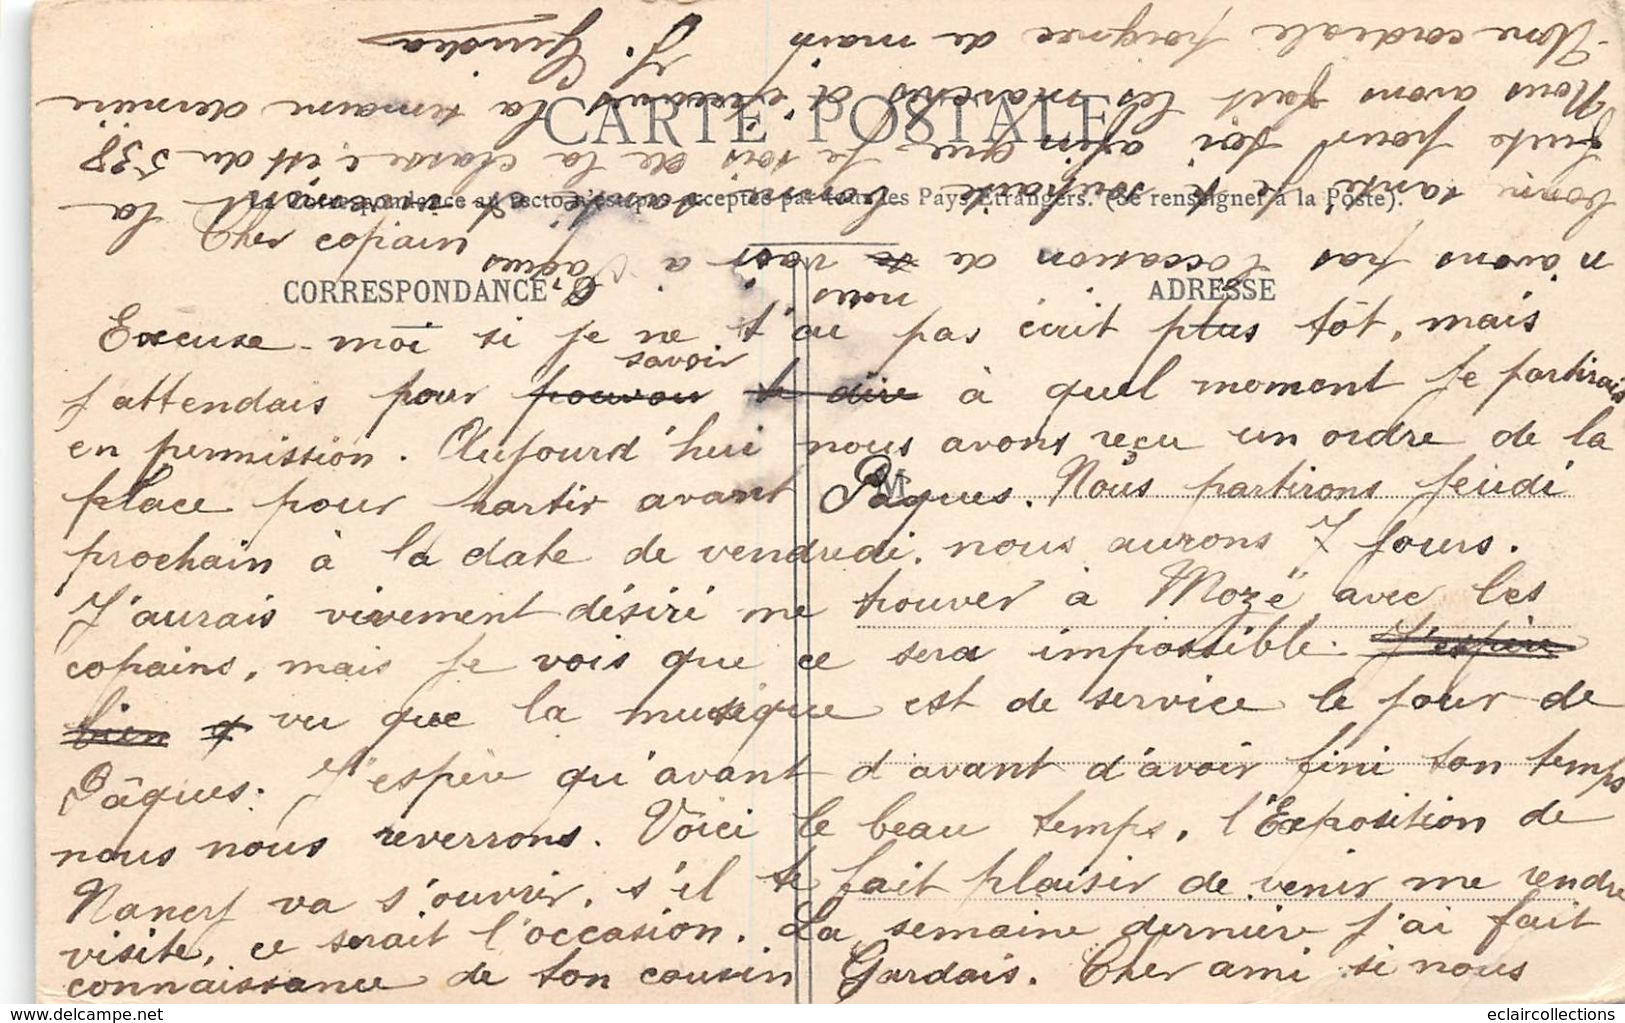 CARTE POSTALE
Correspondance au recto n'est pas acceptée par tous les Pays Étrangers. (Se renseigner à la Poste).
CORRESPONDANCE
ADRESSE
M
Cher copain
Excuse-moi si je ne t'ai pas écrit plus tôt, mais
j'attendais pour pouvoir savoir te dire à quel moment je partirais
en permission. Aujourd'hui nous avons reçu un ordre de la
place pour partir avant Pâques. Nous partirons jeudi
prochain à la date de vendredi, nous aurons 7 jours.
J'aurais vivement désiré me trouver à Mozé avec les
copains, mais je vois que ce sera impossible. J'espère
bien q vu que la musique est de service le jour de
Pâques. J'espère qu'avant d'avant d'avoir fini ton temps
nous nous reverrons. Voici le beau temps, l'Exposition de
Nancy va s'ouvrir, s'il te fait plaisir de venir me rendre
visite, ce serait l'occasion. La semaine dernière j'ai fait
connaissance de ton cousin Gardais. Cher ami si nous
n'avons pas l'occasion de se nous voir à Pâques
bonne santé je te souhaite bonne santé et la
fuite pour toi afin que je sois de la classe c'est du 538
Nous avons fait les marches d'épreuves la semaine dernière
Une cordiale poignée de main